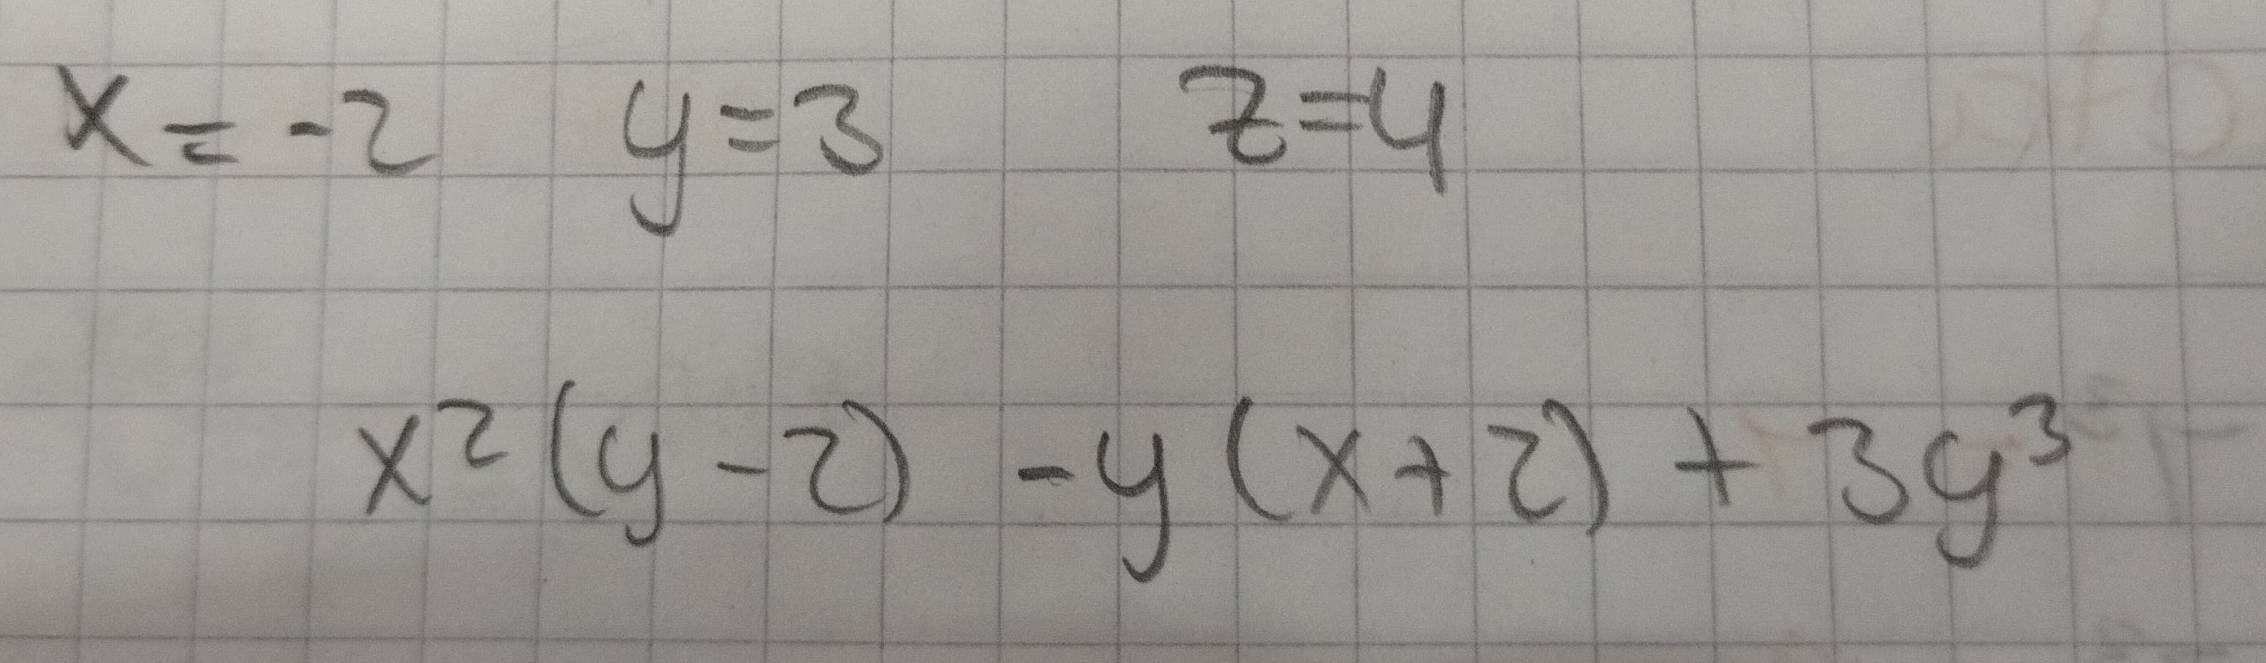 x = -2 y = 3 z = 4
x² (y - 2) - y (x + 2) + 3y³